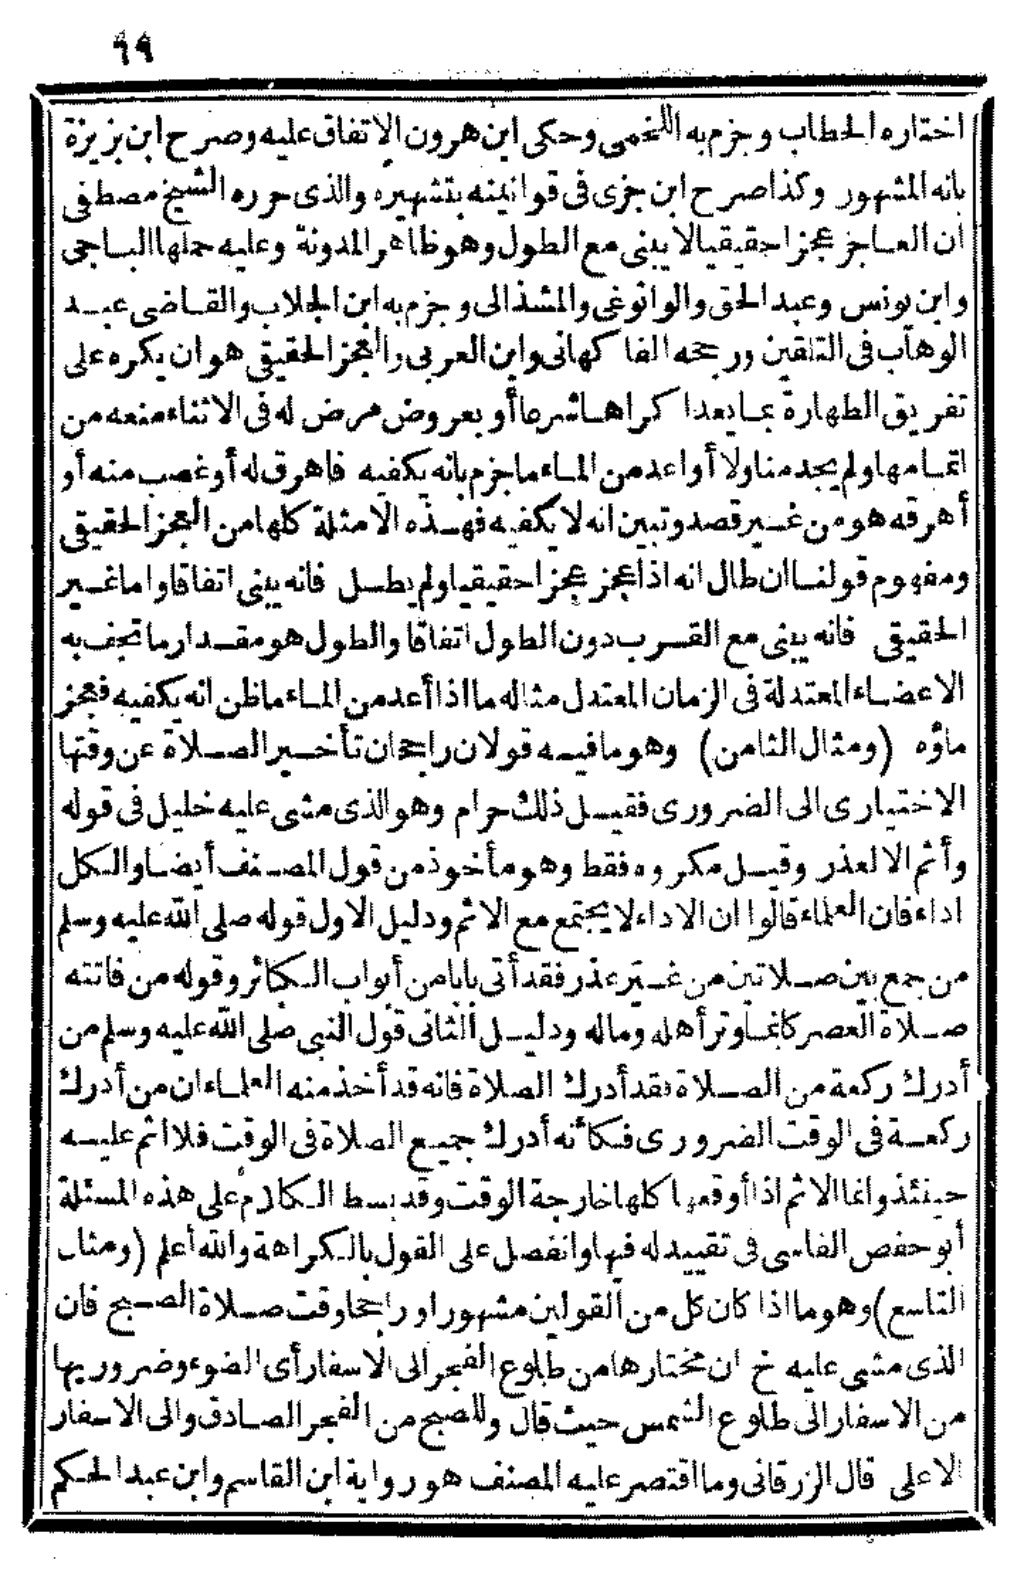 ٦٩
اختاره الحطاب وجزم به اللخمي وحكى ابن هرون الاتفاق عليه وصرح ابن بزيزة
بانه المشهور وكذا صرح ابن جزى فى قوانينه بتشهيره والذى حرره الشيخ مصطفى
ان العاجز عجزا حقيقيا لا يبنى مع الطول وهو ظاهر المدونة وعليه حملها الباجى
وابن يونس وعبد الحق والوانوغى والمشذالى وجزم به ابن الجلاب والقاضى عبد
الوهاب فى التلقين ورجحه الفاكهانى وابن العربى والعجز الحقيقى هو ان يكره على
تفريق الطهارة بما يعد اكراها شرعا أو بعروض مرض له فى الاثناء منعه من
اتمامها ولم يجد مناولا أو اعد من الماء ما جزم بانه يكفيه فاهرق له أو غصب منه أو
أهرقه هو من غير قصد وتبين انه لا يكفيه فهذه الامثلة كلها من العجز الحقيقى
ومفهوم قولنا ان طال انه اذا عجز عجزا حقيقيا ولم يطل فانه يبنى اتفاقا واما غير
الحقيقى فانه يبنى مع القرب دون الطول اتفاقا والطول هو مقدار ما تجف به
الاعضاء المعتدلة فى الزمان المعتدل مثاله ما اذا أعد من الماء ما ظن انه يكفيه فعجز
ماؤه (ومثال الثامن) وهو ما فيه قولان راجحان تأخير الصلاة عن وقتها
الاختيارى الى الضرورى فقيل ذلك حرام وهو الذى مشى عليه خليل فى قوله
وأثم الا لعذر وقيل مكروه فقط وهو مأخوذ من قول المصنف أيضا والكل
اداء فان العلماء قالوا ان الاداء لا يجتمع مع الاثم ودليل الاول قوله صلى الله عليه وسلم
من جمع بين صلاتين من غير عذر فقد أتى بابا من أبواب الكبائر وقوله من فاتته
صلاة العصر كانما وتر أهله وماله ودليل الثانى قول النبى صلى الله عليه وسلم من
أدرك ركعة من الصلاة فقد أدرك الصلاة فانه قد أخذ منه العلماء ان من أدرك
ركعة فى الوقت الضرورى فكأنه أدرك جميع الصلاة فى الوقت فلا اثم عليه
حينئذ وانما الاثم اذا أوقعها كلها خارجة الوقت وقد بسط الكلام على هذه المسئلة
أبو حفص الفاسى فى تقييد له فيها وانفصل على القول بالكراهة والله أعلم (ومثال
التاسع) وهو ما اذا كان كل من القولين مشهورا وراجحا وقت صلاة الصبح فان
الذى مشى عليه خ ان مختارها من طلوع الفجر الى الاسفار أى الضوء وضروريها
من الاسفار الى طلوع الشمس حيث قال وللصبح من الفجر الصادق والى الاسفار
الاعلى قال الزرقانى وما اقتصر عليه المصنف هو رواية ابن القاسم وابن عبد الحكم